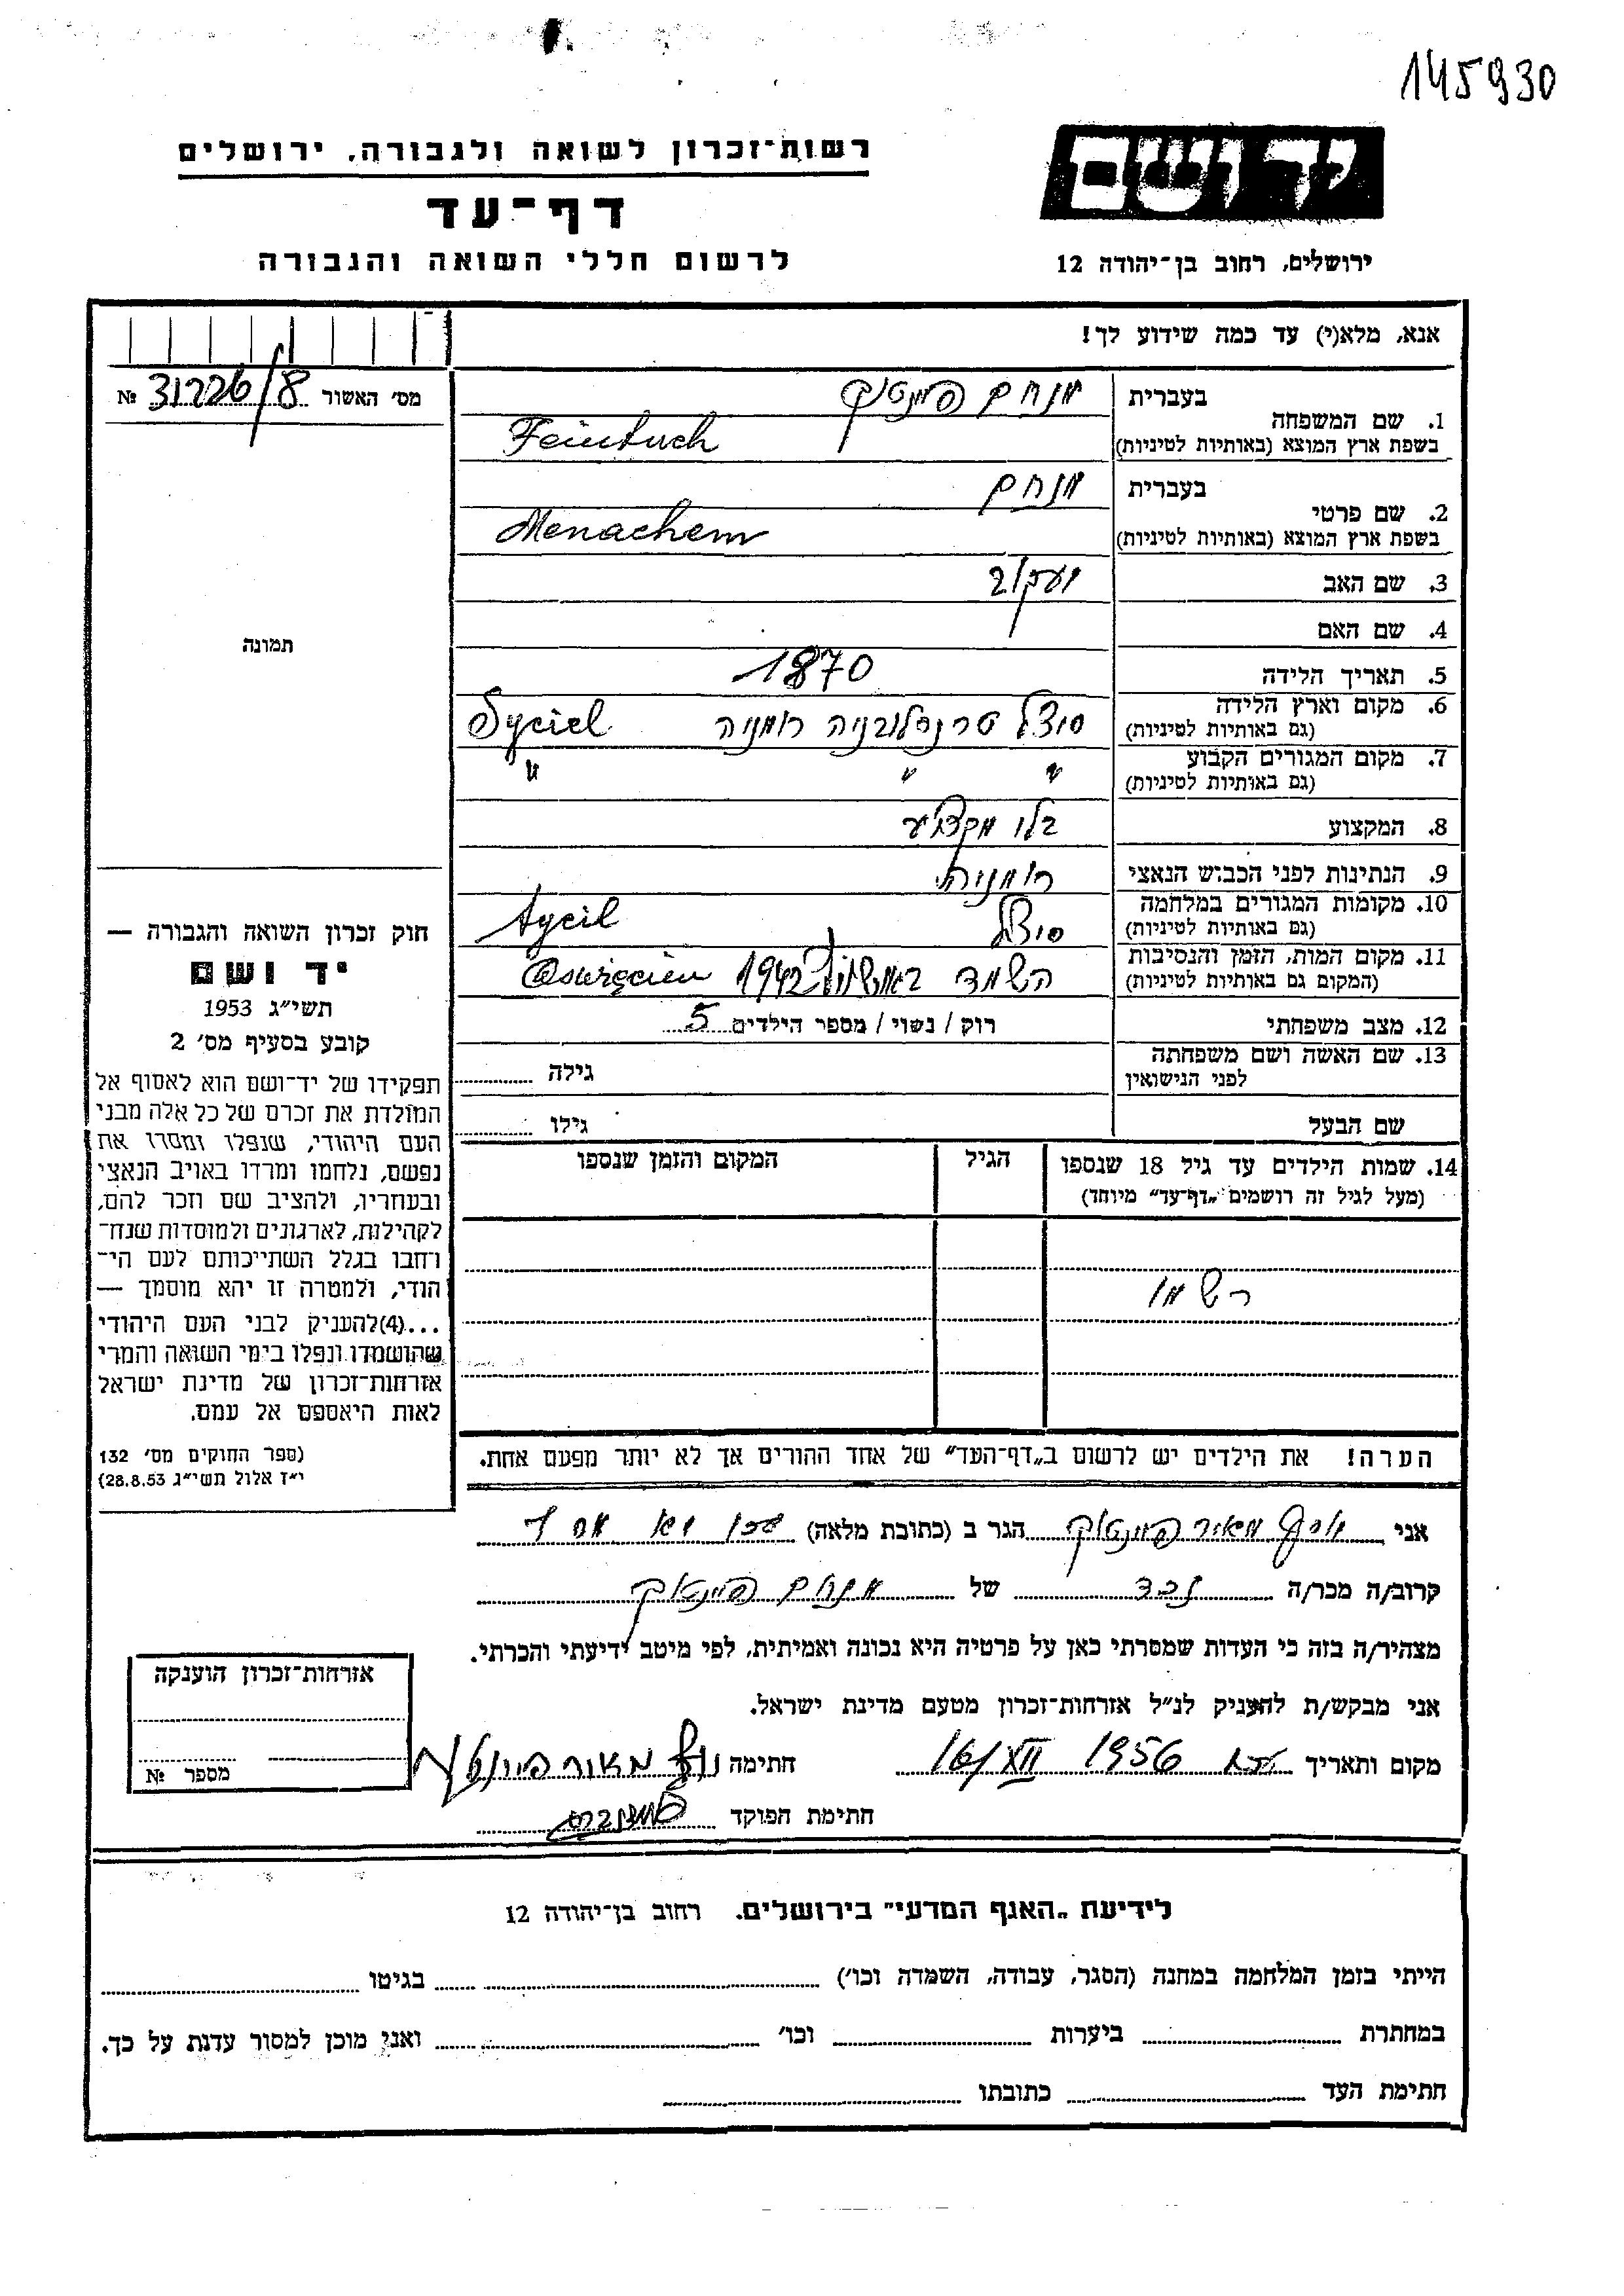 145930
יד ושם
רשות־זכרון לשואה ולגבורה, ירושלים
דף־עד
לרשום חללי השואה והגבורה
ירושלים, רחוב בן־יהודה 12
אנא, מלא(י) עד כמה שידוע לך!
מס׳ האשור № 31226/8
בעברית מנחם פינטוך
1. שם המשפחה
בשפת ארץ המוצא (באותיות לטיניות) Feintuch
בעברית מנחם
2. שם פרטי
בשפת ארץ המוצא (באותיות לטיניות) Menachem
3. שם האב יעקוב
4. שם האם
תמונה
5. תאריך הלידה 1870
6. מקום וארץ הלידה סוצל טרנסלובניה רומניה Syciel
(גם באותיות לטיניות)
7. מקום המגורים הקבוע " " "
(גם באותיות לטיניות)
8. המקצוע בלי מקצוע
9. הנתינות לפני הכבוש הנאצי רומנית
10. מקומות המגורים במלחמה סוצל Sycil
(גם באותיות לטיניות)
11. מקום המות, הזמן והנסיבות השמד באושוויץ 1942 Oswięcien
(המקום גם באותיות לטיניות)
12. מצב משפחתי רוק / נשוי / מספר הילדים 5
13. שם האשה ושם משפחתה גילה
לפני הנישואין
שם הבעל גילו
14. שמות הילדים עד גיל 18 שנספו הגיל המקום והזמן שנספו
(מעל לגיל זה רושמים „דף־עד״ מיוחד)
רשמו
הערה! את הילדים יש לרשום ב„דף־העד״ של אחד ההורים אך לא יותר מפעם אחת.
חוק זכרון השואה והגבורה —
יד ושם
תשי״ג 1953
קובע בסעיף מס׳ 2
תפקידו של יד־ושם הוא לאסוף אל
המולדת את זכרם של כל אלה מבני
העם היהודי, שנפלו ומסרו את
נפשם, נלחמו ומרדו באויב הנאצי
ובעוזריו, ולהציב שם וזכר להם,
לקהילות, לארגונים ולמוסדות שנח־
רחבו בגלל השתייכותם לעם הי־
הודי, ולמטרה זו יהא מוסמך —
...(4)להעניק לבני העם היהודי
שהושמדו ונפלו בימי השואה והמרי
אזרחות־זכרון של מדינת ישראל
לאות היאספם אל עמם.
(ספר החוקים מס׳ 132
י״ז אלול תשי״ג 28.8.53)
אני מאיר פינטוך הגר ב (כתובת מלאה)
קרוב/ה מכר/ה נכד של מנחם פיינטוך
מצהיר/ה בזה כי העדות שמסרתי כאן על פרטיה היא נכונה ואמיתית, לפי מיטב ידיעתי והכרתי.
אני מבקש/ת להעניק לנ״ל אזרחות־זכרון מטעם מדינת ישראל.
מקום ותאריך 16/XII 1956 חתימה מאיר פיינטוך
חתימת הפוקד
אזרחות־זכרון הוענקה
מספר №
לידיעת „האגף המדעי״ בירושלים, רחוב בן־יהודה 12
הייתי בזמן המלחמה במחנה (הסגר, עבודה, השמדה וכו׳) בגיטו
במחתרת ביערות וכו׳ ואני מוכן למסור עדות על כך.
חתימת העד כתובתו